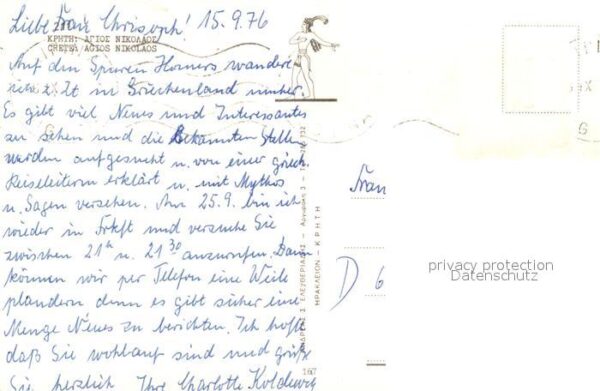 Liebe Frau Chrisoph! 15.9.76
ΚΡΗΤΗ: ΑΓΙΟΣ ΝΙΚΟΛΑΟΣ
CRETE: AGIOS NIKOLAOS
Auf den Spuren Homers wandere
ich z. Zt in Griechenland umher.
Es gibt viel Neues und Interessantes
zu sehen und die bekannten Stellen
werden aufgesucht u. von einer griech.
Reiseleiterin erklärt u. mit Mythos
u. Sagen versehen. Am 25.9. bin ich
wieder in Frkft und versuche Sie
zwischen 21 h u. 21 30 anzurufen. Dann
können wir per Telefon eine Weile
plaudern denn es gibt sicher eine
Menge Neues zu berichten. Ich hoffe
daß Sie wohlauf sind und grüße
Sie herzlich Ihre Charlotte
ΗΡΑΚΛΕΙΟΝ - ΚΡΗΤΗ
167
Frau
D 6
privacy protection
Datenschutz